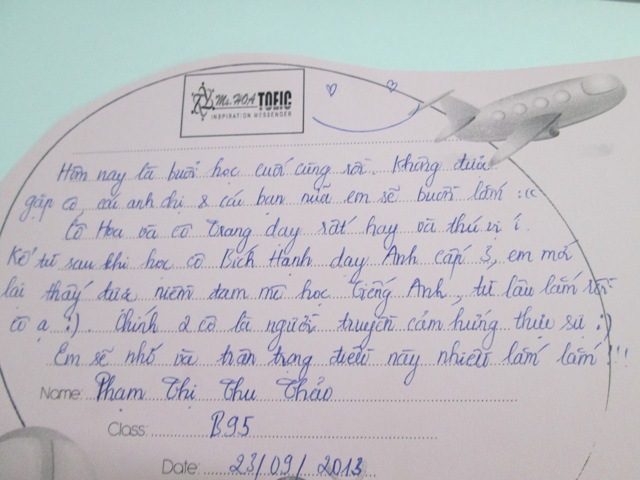 Ms. HOA TOEIC
INSPIRATION MESSENGER
Hôm nay là buổi học cuối cùng rồi. Không được
gặp cô, các anh chị & các bạn nữa em sẽ buồn lắm :((
Cô Hoa và cô Trang dạy rất hay và thú vị í.
Kể từ sau khi học cô Bích Hạnh dạy Anh cấp 3, em mới
lại thấy được niềm đam mê học Tiếng Anh, từ lâu lắm rồi
cô ạ :). Chính 2 cô là người truyền cảm hứng thực sự :)
Em sẽ nhớ và trân trọng điều này nhiều lắm lắm!!!
Name: Phạm Thị Thu Thảo
Class: B95
Date: 23/09/2013